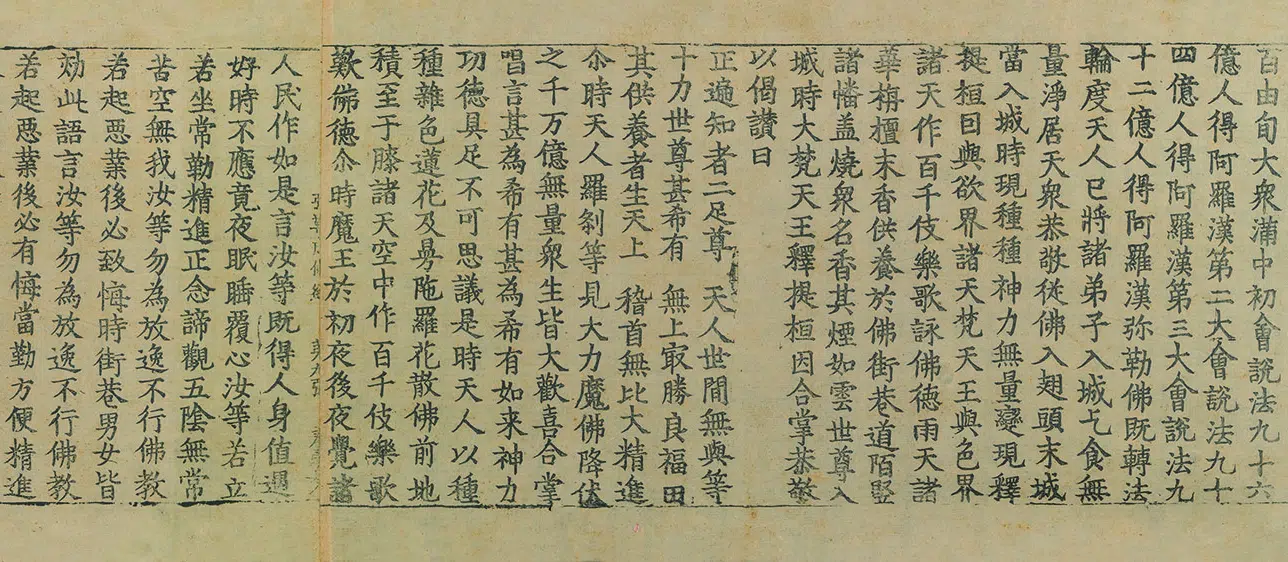 百由旬大衆蒲中初會說法九十六
億人得阿羅漢第二大會說法九十
四億人得阿羅漢第三大會說法九
十二億人得阿羅漢弥勒佛既轉法
輪度天人已將諸弟子入城乞食無
量淨居天衆恭敬從佛入翅頭末城
當入城時現種種神力無量變現釋
提桓因與欲界諸天梵天王與色界
諸天作百千伎樂歌詠佛德雨天諸
華栴檀末香供養於佛街巷道陌竪
諸幡盖燒衆名香其煙如雲世尊入
城時大梵天王釋提桓因合掌恭敬
以偈讃曰
正遍知者二足尊 天人世間無與等
十力世尊甚希有 無上㝡勝良福田
其供養者生天上 稽首無比大精進
尒時天人羅剎等見大力魔佛降伏
之千万億無量衆生皆大歡喜合掌
唱言甚為希有甚為希有如来神力
功德具足不可思議是時天人以種
種雜色蓮花及曼陁羅花散佛前地
積至于膝諸天空中作百千伎樂歌
歎佛德尒時魔王於初夜後夜覺諸
第九張
人民作如是言汝等既得人身值遇
好時不應竟夜眠睡覆心汝等若立
若坐常勤精進正念諦觀五陰無常
苦空無我汝等勿為放逸不行佛教
若起惡業後必致悔時街巷男女皆
効此語言汝等勿為放逸不行佛教
若起惡業後必有悔當勤方便精進